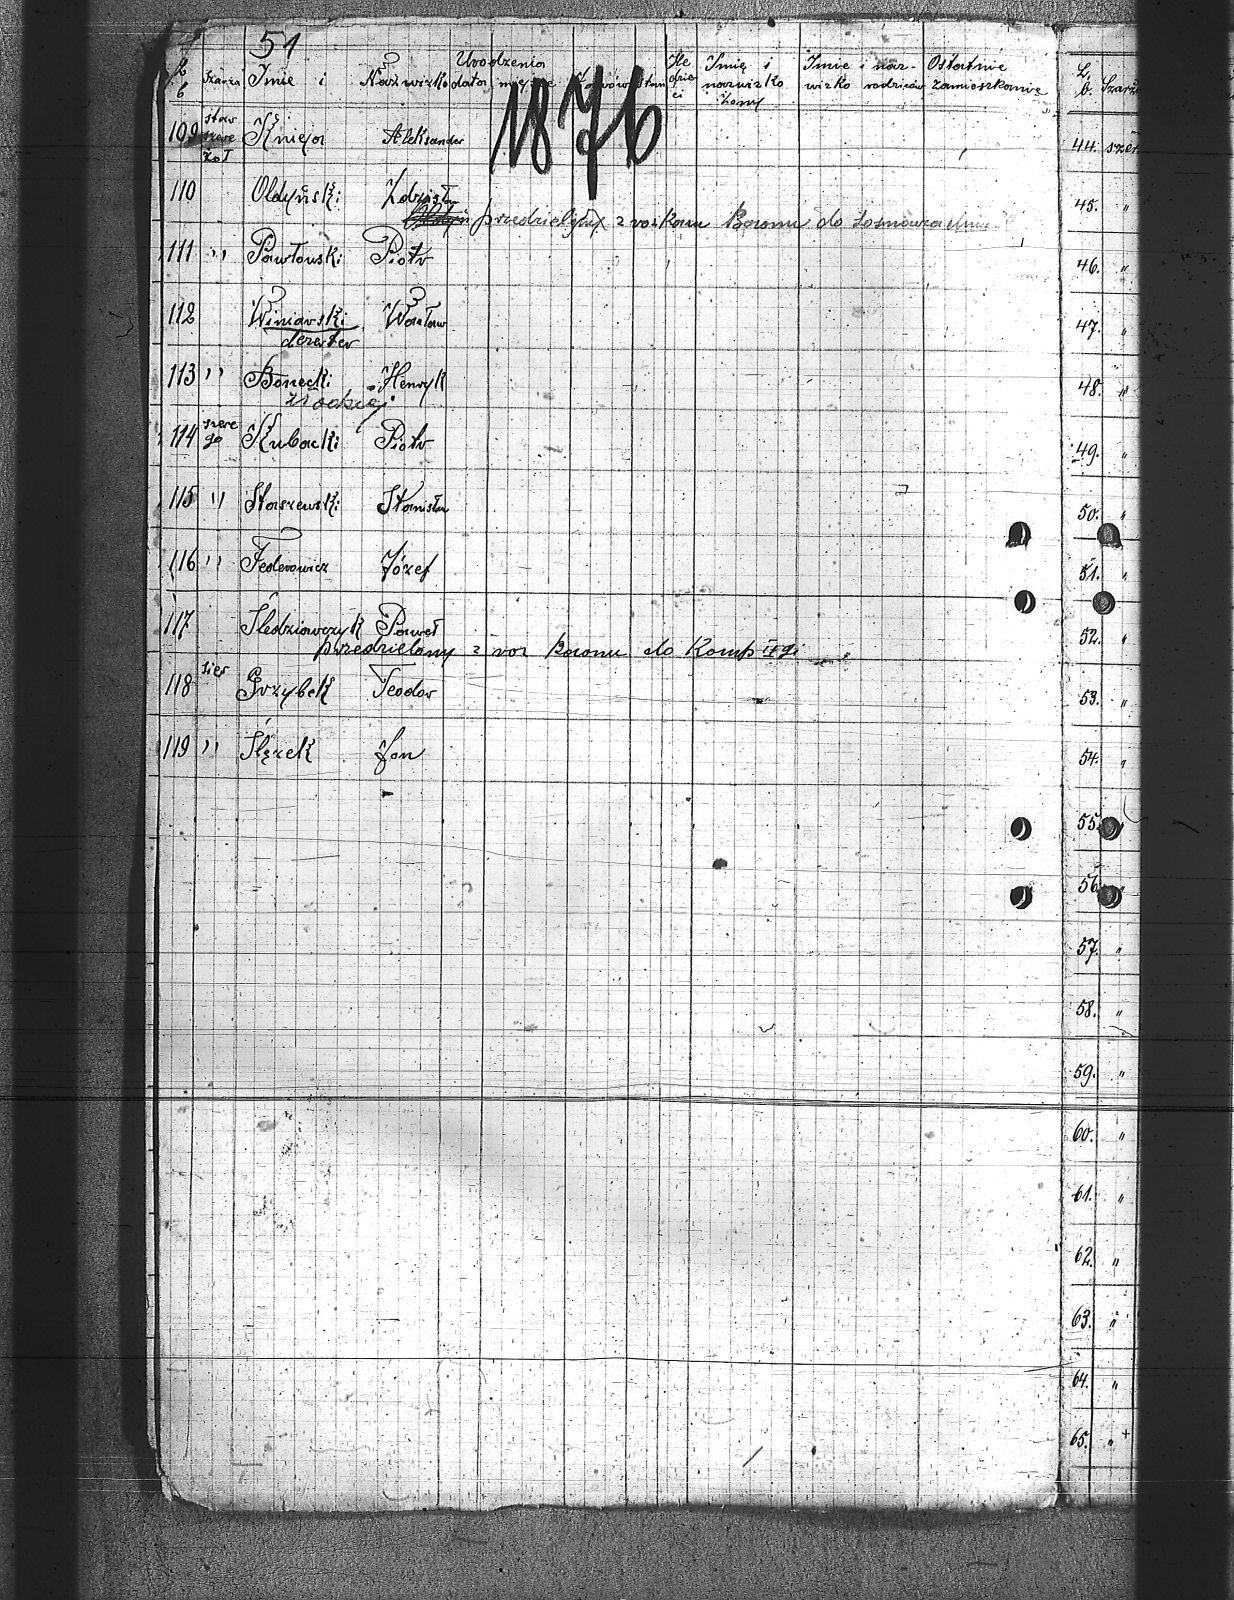 51
L b Szarża Imię i Nazwisko Urodzenia data miejsce Zawód Stan Ile dzieci Imię i nazwisko żony Imię i naz- wisko rodziców Ostatnie zamieszkanie
1876
109 star szere żoł Knieja Aleksander
110 Oldyński Zdzisław
przedzielony z rozkazu Baonu do
111 " Pawłowski Piotr
112 Winiarski Wacław
dezerter
113 " Bonecki Henryk
złodziej
114 szere go Kubacki Piotr
115 " Staszewski Stanisław
116 " Federowicz Józef
117 Śledziowczyk Paweł
przedzielony z roz Baonu do Komp II gi
118 sier Grzybek Teodor
119 " Ślęzek Jan
L. b. Szarża
44. szer
45. "
46. "
47. "
48. "
49. "
50. "
51. "
52. "
53. "
54. "
55. "
56. "
57. "
58. "
59. "
60. "
61. "
62. "
63. "
64. "
65. "